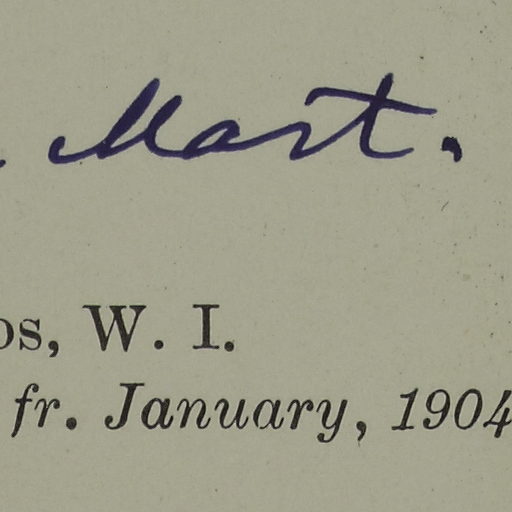 Mart.
os, W. I.
fr. January, 1904